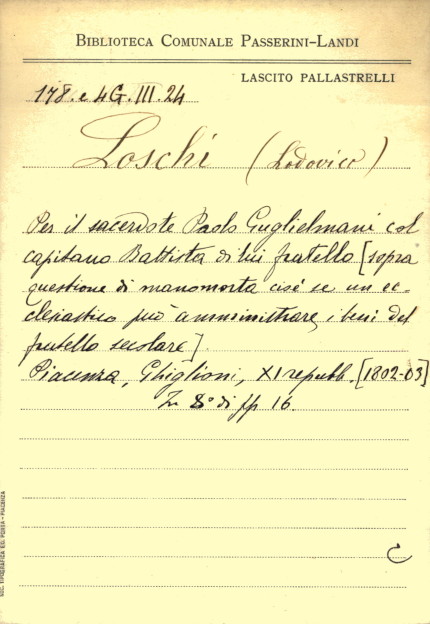 BIBLIOTECA COMUNALE PASSERINI-LANDI
LASCITO PALLASTRELLI
178.e 4G.III.24
Loschi (Lodovico)
Per il sacerdote Paolo Guglielmani col
capitano Battista di lui fratello [sopra
questione di manomorta cioè se un ec-
clesiastico può amministrare i beni del
fratello secolare].
Piacenza, Ghiglioni, XI repubb. [1802-03]
In 8° di pp 16.
C
SOC. TIPOGRAFICA ED. PORTA - PIACENZA